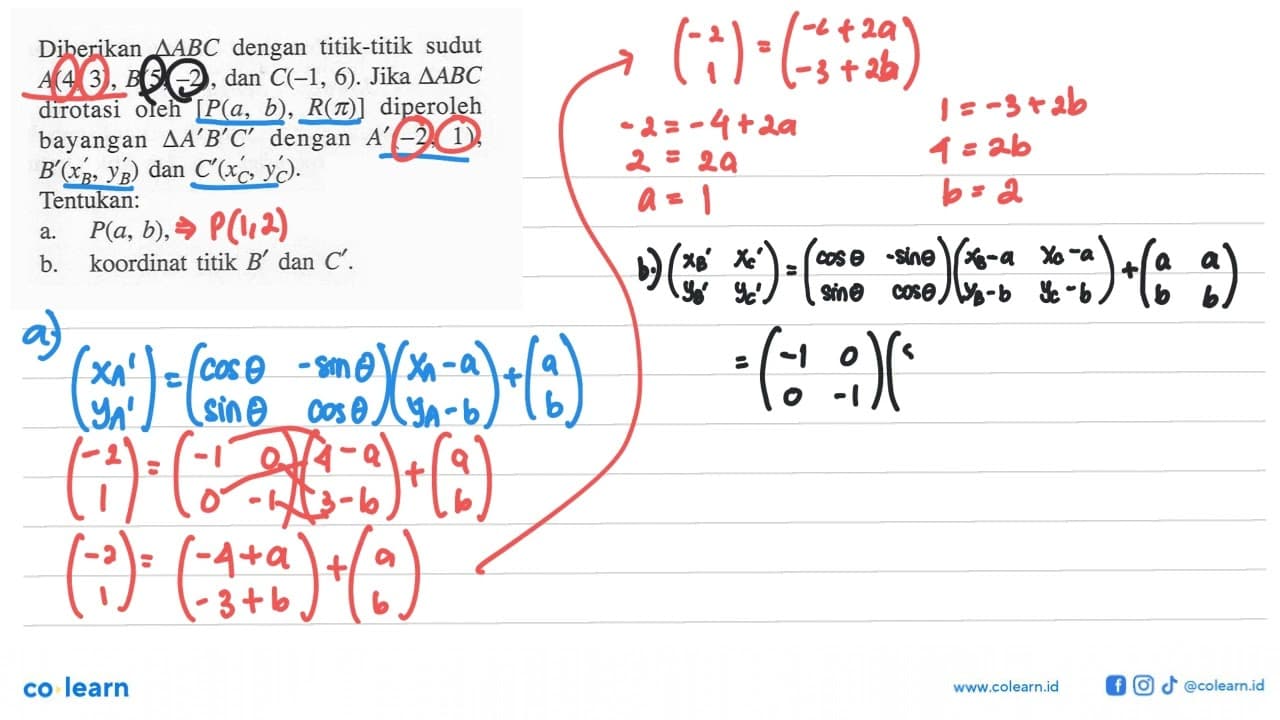 Diberikan ΔABC dengan titik-titik sudut
A(4, 3), B(5, -2), dan C(-1, 6). Jika ΔABC
dirotasi oleh [P(a, b), R(π)] diperoleh
bayangan ΔA'B'C' dengan A'(-2, 1),
B'(x'_B, y'_B) dan C'(x'_C, y'_C).
Tentukan:
a. P(a, b), ⇒ P(1,2)
b. koordinat titik B' dan C'.
a) (x_A' y_A') = (cos θ -sin θ sin θ cos θ)(x_A - a y_A - b) + (a b)
(-2 1) = (-1 0 0 -1)(4 - a 3 - b) + (a b)
(-2 1) = (-4 + a -3 + b) + (a b)
(-2 1) = (-4 + 2a -3 + 2b)
-2 = -4 + 2a
2 = 2a
a = 1
1 = -3 + 2b
4 = 2b
b = 2
b.) (x_B' x_C' y_B' y_C') = (cos θ -sin θ sin θ cos θ)(x_B - a x_C - a y_B - b y_C - b) + (a a b b)
= (-1 0 0 -1)(
co learn
www.colearn.id
@colearn.id